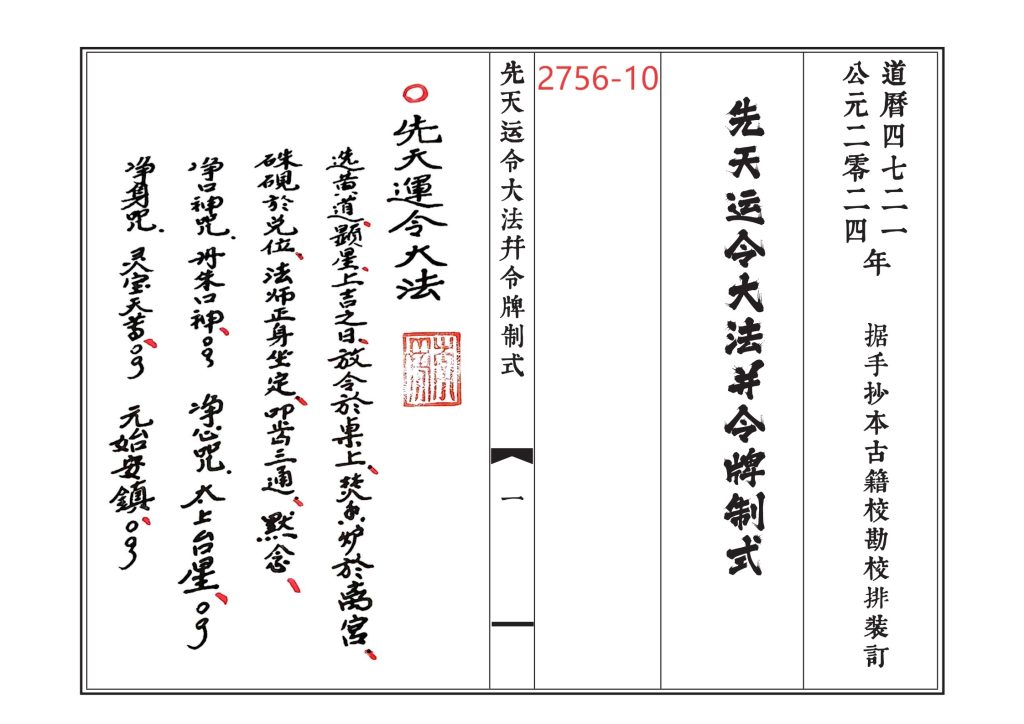 道曆四七二一年
公元二零二四
据手抄本古籍校勘校排裝訂
先天运令大法并令牌制式
2756-10
先天运令大法并令牌制式
一
先天運令大法
选黄道顕星上吉之日放令於桌上焚香炉於离宫
硃硯於兑位法师正身坐定叩齿三通默念
净口神咒丹朱口神 净心咒太上台星
净身咒灵宝天尊 元始安鎮